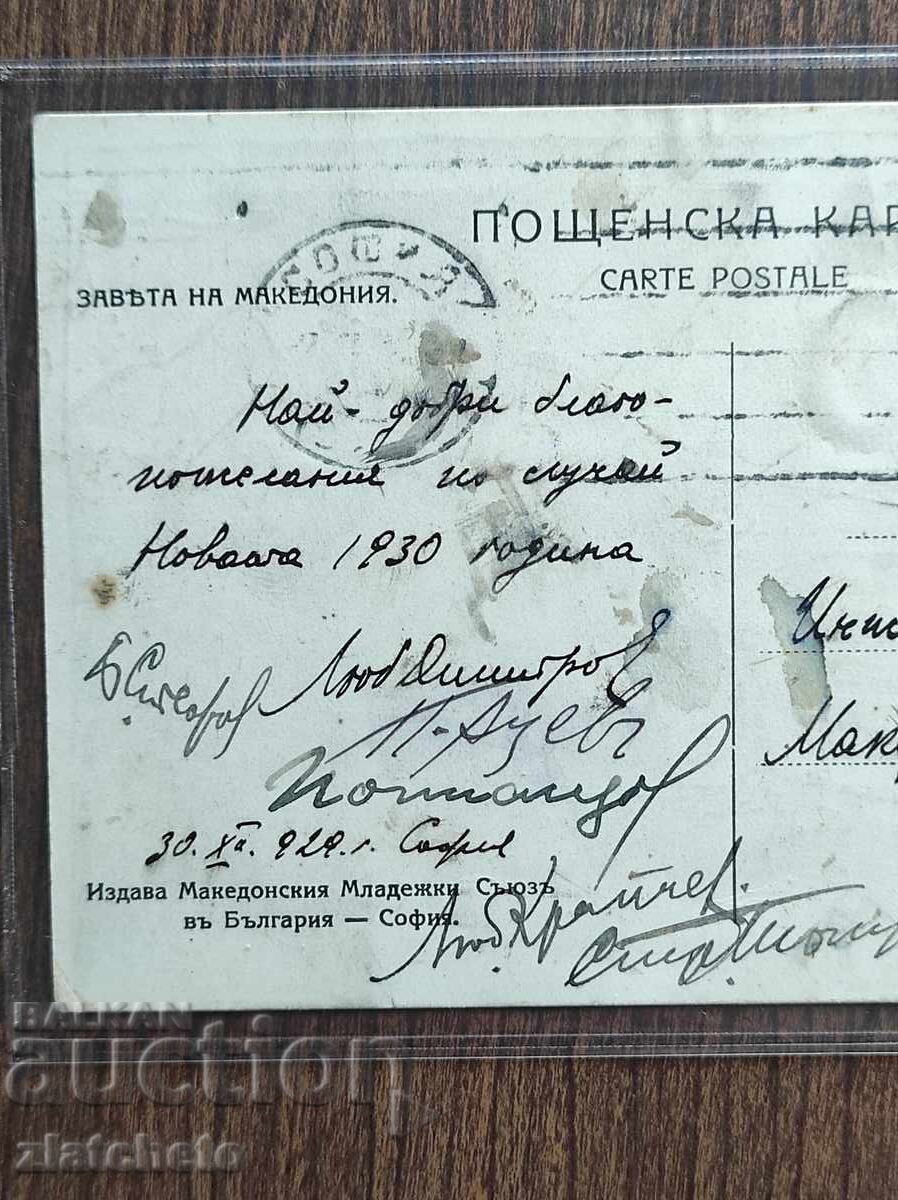 ПОЩЕНСКА КАР
CARTE POSTALE
СОФИЯ
ЗАВѢТА НА МАКЕДОНИЯ.
Най-добри благо-
пожелания по случай
Новата 1930 година
Люб Димитров
30. XII. 929. г. София
Мак
Издава Македонския Младежки Съюзъ
въ България — София.
Люб. Крапчев.
BALKAN
auction
zlatcheto